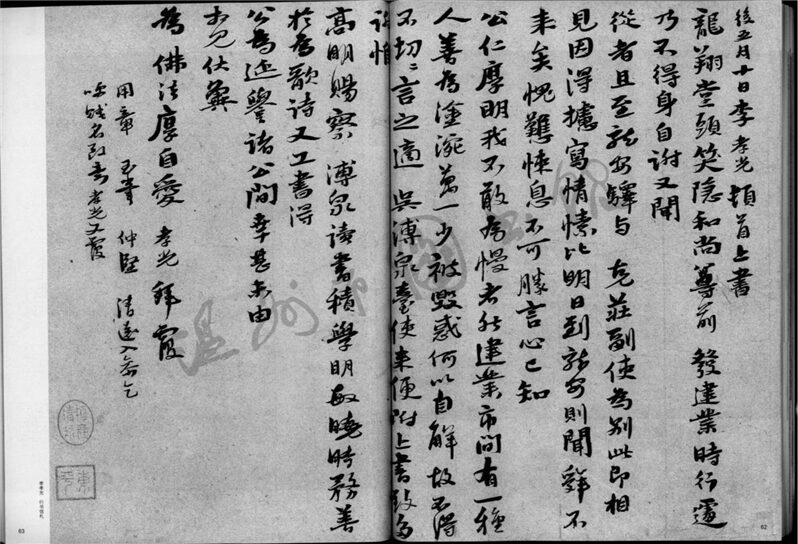 後五月十日李孝光頓首上書
龍翔堂頭笑隱和尚尊前 發建業時行遽
乃不得身自謝又聞
從者且至龍安驛与 克莊副使為別此即相
見因得攄寫情愫比明日到龍安則聞 不
来矣愧難悚息不可勝言心已知
公仁厚明我不敢為慢者然建業市間有一種
人善為塗涴萬一少被毀惑何以自解故不得
不切々言之適 吳溥泉臺使来便附上書致多
謝惟
高明賜察 溥泉讀書積學明敏曉時務善
於為歌詩又工書得
公為延譽諸公間幸甚未由
見伏冀
為佛法厚自愛 孝光拜覆
用章 玉章 仲堅 清遠 乞
呼賤名致意 孝光又覆
李孝光 行書信札
63
62
温州市圖書館